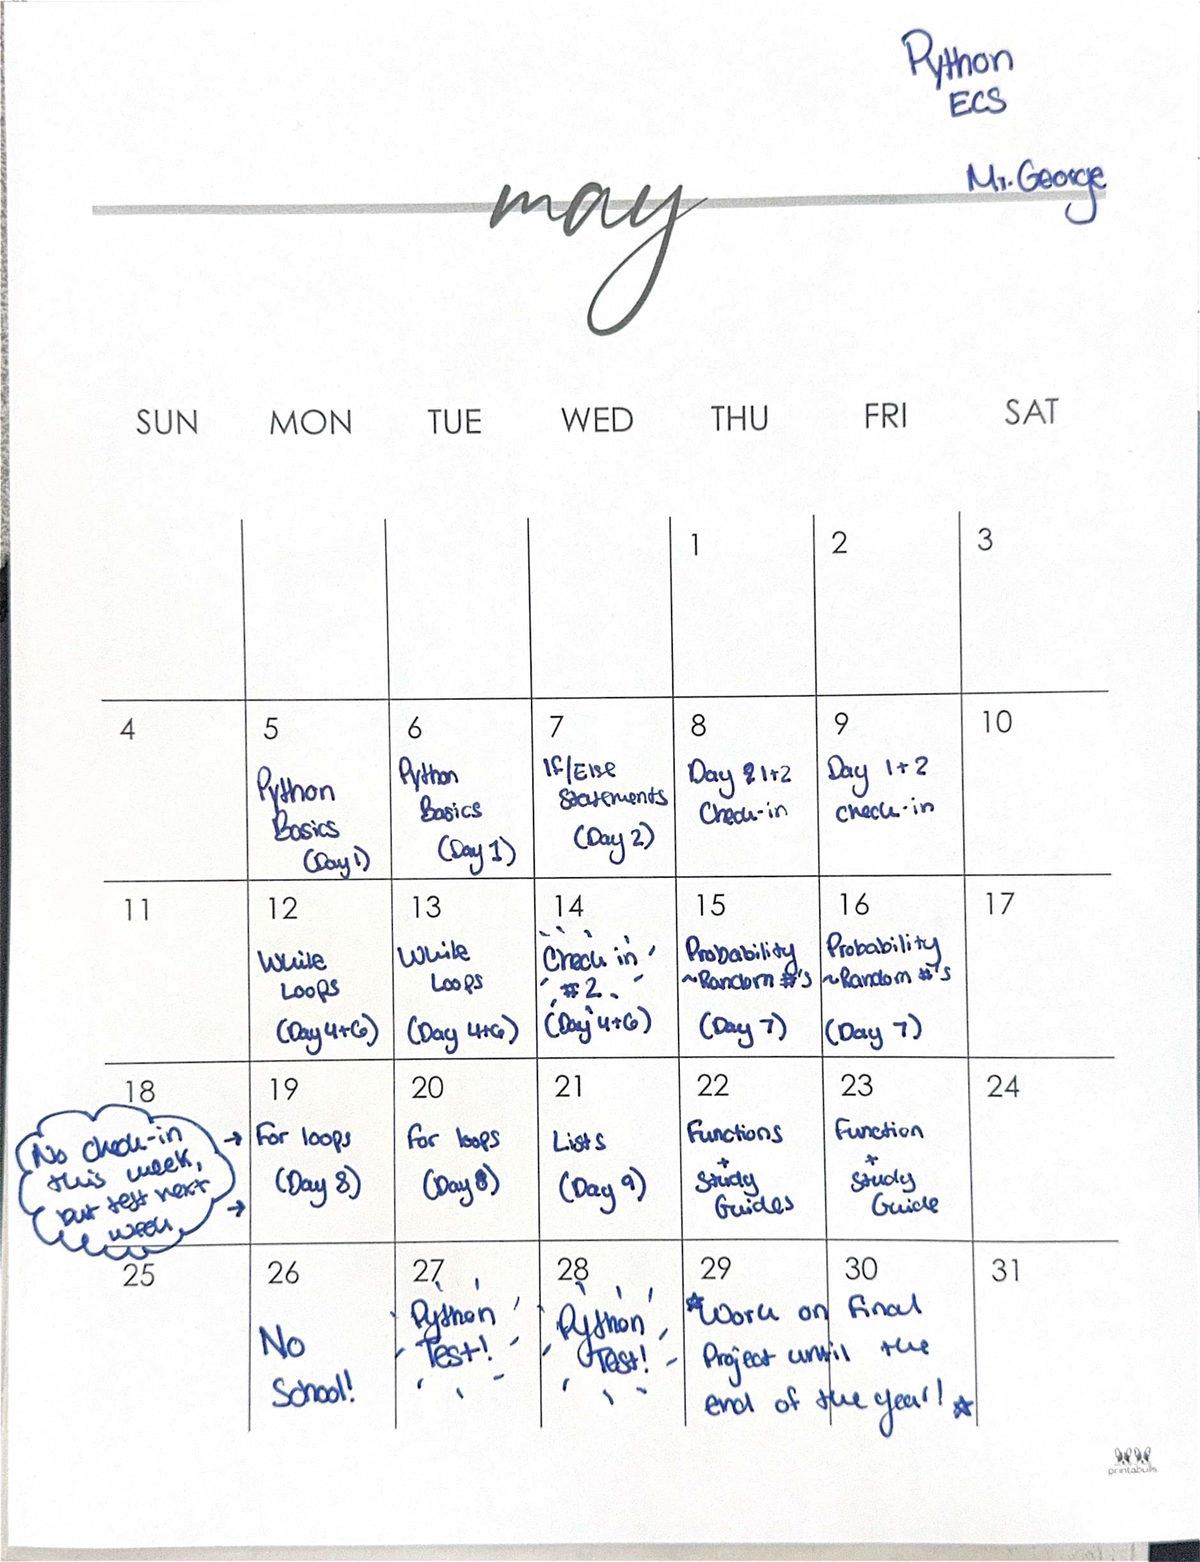 Python
ECS
Mr. George
may
SUN MON TUE WED THU FRI SAT
1 2 3
4 5 6 7 8 9 10
Python
Basics
(Day 1)
Python
Basics
(Day 1)
If/Else
Statements
(Day 2)
Day 1+2
Check-in
Day 1+2
check-in
11 12 13 14 15 16 17
While
Loops
(Day 4+6)
While
Loops
(Day 4+6)
Check in
#2
(Day 4+6)
Probability
~Random #'s
(Day 7)
Probability
~Random #'s
(Day 7)
18 19 20 21 22 23 24
No check-in
this week,
but test next
week
For loops
(Day 8)
For loops
(Day 8)
Lists
(Day 9)
Functions
+
Study
Guides
Function
+
Study
Guide
25 26 27 28 29 30 31
No
School!
Python
Test!
Python
Test!
Work on Final
Project until the
end of the year!
printabulls